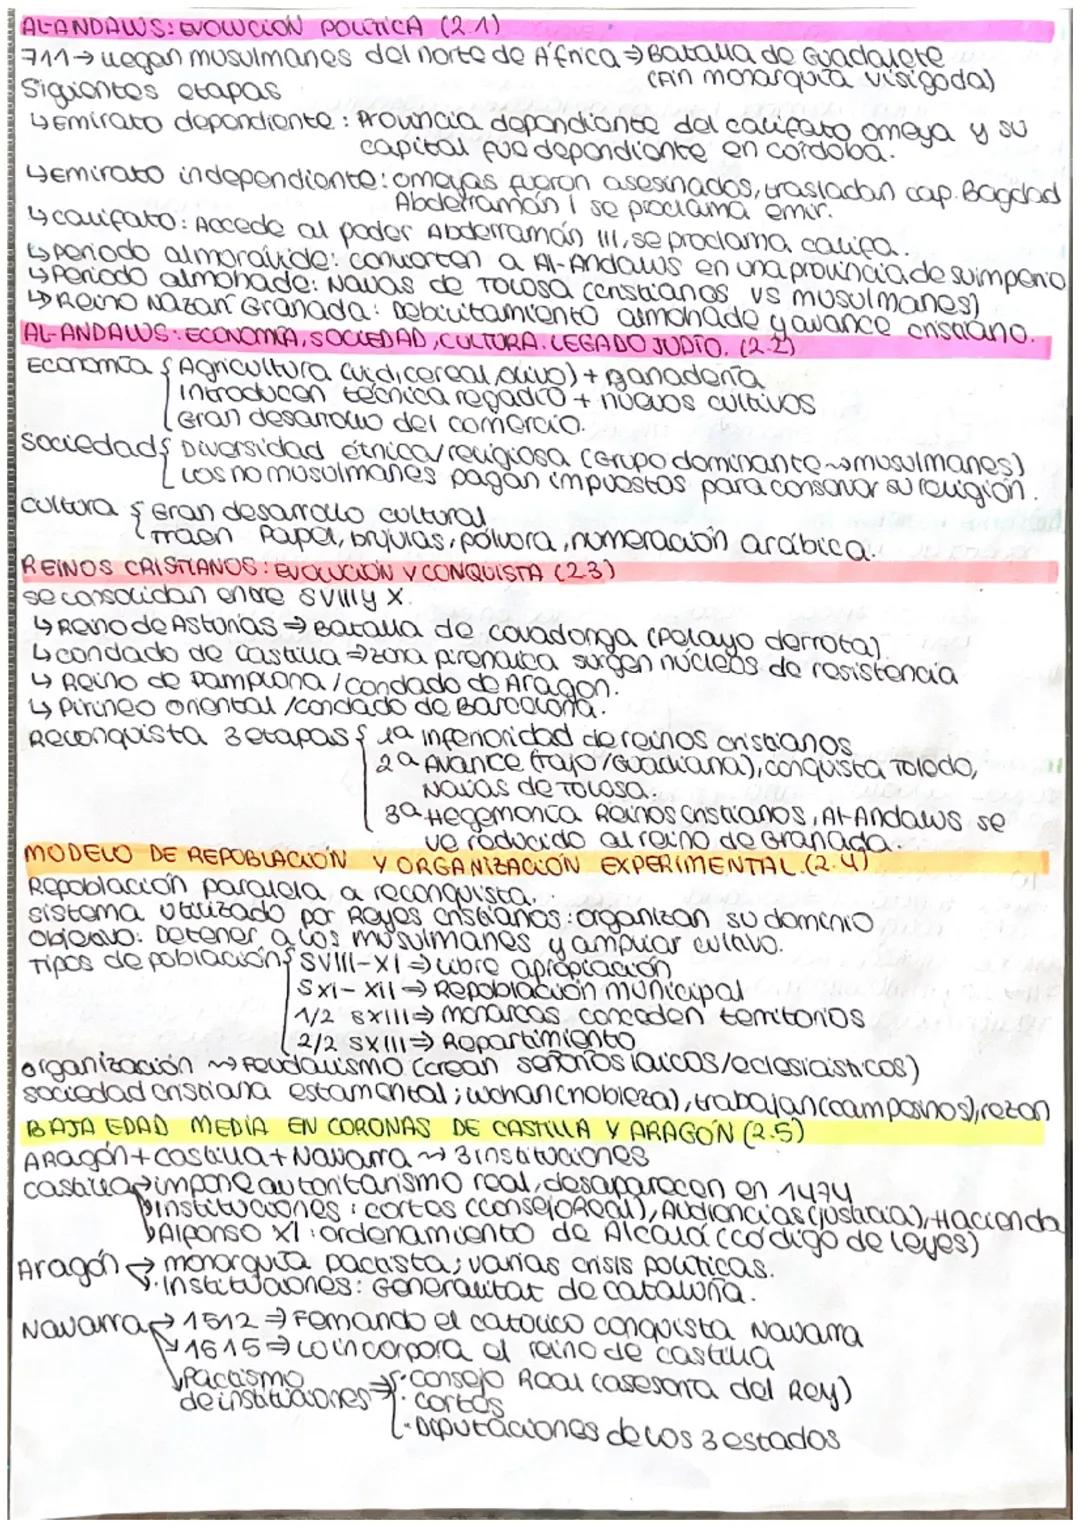 AL-ANDALUS: EVOLUCIÓN POLÍTICA (2.1)
711→ llegan musulmanes del norte de África ⇒ Batalla de Guadalete
(Fin monarquía visigoda)
Siguientes etapas
↳Emirato dependiente: Provincia dependiente del califato omeya y su
capital fue dependiente en córdoba.
↳Emirato independiente: omeyas fueron asesinados, trasladan cap. Bagdad
Abderramán I se proclama emir.
↳califato: Accede al poder Abderramán III, se proclama califa.
↳Periodo almorávide: convierten a Al-Andalus en una provincia de su imperio
↳Periodo almohade: Navas de Tolosa (cristianos vs musulmanes)
↳Reino Nazarí Granada: Debilitamiento almohade y avance cristiano.
AL-ANDALUS: ECONOMÍA, SOCIEDAD, CULTURA. LEGADO JUDÍO. (2.2)
Economía { Agricultura (vid, cereal, olivo) + ganadería
Introducen técnica regadío + nuevos cultivos
Gran desarrollo del comercio.
Sociedad { Diversidad étnica/religiosa (Grupo dominante ⇝ musulmanes)
Los no musulmanes pagan impuestos para conservar su religión.
Cultura { Gran desarrollo cultural
Traen Papel, brújulas, pólvora, numeración arábica.
REINOS CRISTIANOS: EVOLUCIÓN Y CONQUISTA (2.3)
se consolidan entre SVIII y X.
↳ Reino de Asturias ⇒ Batalla de covadonga (Pelayo derrota).
↳ condado de castilla ⇒ zona pirenaica surgen núcleos de resistencia
↳ Reino de Pamplona / condado de Aragón.
↳ Pirineo oriental / condado de Barcelona.
Reconquista 3 etapas { 1ª inferioridad de reinos cristianos
2ª Avance (Tajo/Guadiana), conquista Toledo,
Navas de Tolosa.
3ª Hegemonía Reinos cristianos, Al-Andalus se
ve reducido al reino de Granada.
MODELO DE REPOBLACIÓN Y ORGANIZACIÓN EXPERIMENTAL. (2.4)
Repoblación paralela a reconquista.
sistema utilizado por Reyes cristianos: organizan su dominio
Objetivo: Detener a los musulmanes y ampliar cultivo.
Tipos de población { SVIII-XI ⇒ libre apropiación
S XI-XII ⇒ Repoblación municipal
1/2 SXIII ⇒ monarcas conceden territorios
2/2 SXIII ⇒ Repartimiento
organización ⇝ Feudalismo (crean señoríos laicos/eclesiásticos)
sociedad cristiana estamental; luchan (nobleza), trabajan (campesinos), rezan
BAJA EDAD MEDIA EN CORONAS DE CASTILLA Y ARAGÓN (2.5)
ARagón + castilla + Navarra ⇝ 3 instituciones
castilla → impone autoritarismo real, desaparecen en 1474
Instituciones: cortes (Consejo Real), Audiencias (justicia), Hacienda
Alfonso XI: ordenamiento de Alcalá (código de leyes)
Aragón → monarquía pactista; varias crisis políticas.
Instituciones: Generalitat de cataluña.
Navarra → 1512 ⇒ Fernando el católico conquista Navarra
→ 1515 ⇒ lo incorpora al reino de castilla
Pactismo
de instituciones ⇒ { · consejo Real (asesoría del Rey)
· cortes
· Diputaciones de los 3 estados